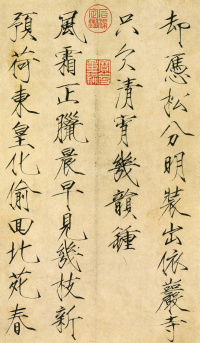 却憑松分明裝出依巖寺
只欠清宵幾韻鍾
風霜正臘晨早見幾枝新
預荷東皇化偷回北苑春